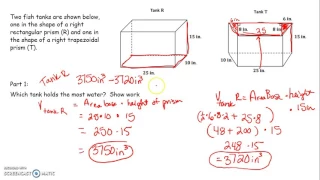 Two fish tanks are shown below,
one in the shape of a right
rectangular prism (R) and one in
the shape of a right trapezoidal
prism (T).
Tank R
15 in.
10 in.
25 in.
Tank T
6in
6in
25
8 in.
15 in.
15 in.
Tank R 3750in³ - 3720in³
Part 1:
Which tank holds the most water? Show work
V tank R = Area base · height of prism
= 25·10 · 15
= 250 · 15
= 3750in³
V tank T = Area Base · height
(½·6·8·2 + 25·8) · 15in
(48 + 200) · 15
248 · 15
= 3720in³
RECORDED WITH
SCREENCAST-O-MATIC